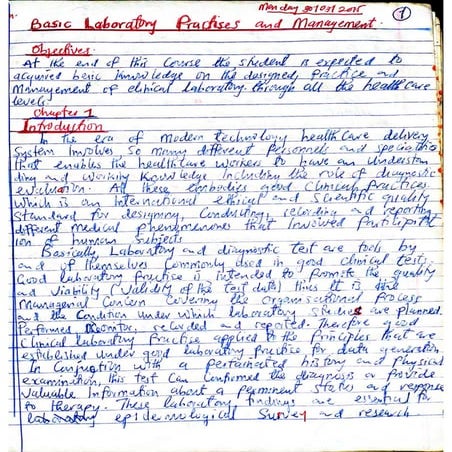 Monday 30/03/2015
1
Basic Laboratory Practises and Management.
Objectives
At the end of this Course the student is expected to
acquired basic knowledge on the designed, Practice and
Management of clinical Laboratory through all the health Care
levels
Chapter 1
Introduction
In the era of Modern technology health Care delivery
System Involves so many different Personnels and specialties
that enables the healthcare workers to have an Understan
ding and working Knowledge Including the role of diagnostic
evaluation. All these embodies good Clinical Practices
which is an International ethical and Scientific quality
Standard for designing, Conducting, recording and reporting
different Medical phenomenones that Invoved Participat
ion of human Subjects
Basically, Laboratory and diagnostic test are tools by
and of themselves Commonly used in good clinical tests.
Good Laboratory Practice is Intended to Promote the quality
and Viability (Validity of the test data) thus It is the
Managerial Concern Covering the organisational Process
and the Condition under which laboratory studies are planned
Performed Monitor, recorded and reported. Therefore good
Clinical Laboratory Practice applied to the Principles that are
established under good laboratory Practice, for data generation
In Conjuction with a pertainated history and Physical
examination, this test Can Confirmed the diagnosis or Provide
Valuable Information about a Perminent status and response
to therapy. These laboratory findings are essential for
epidemological Survey and research